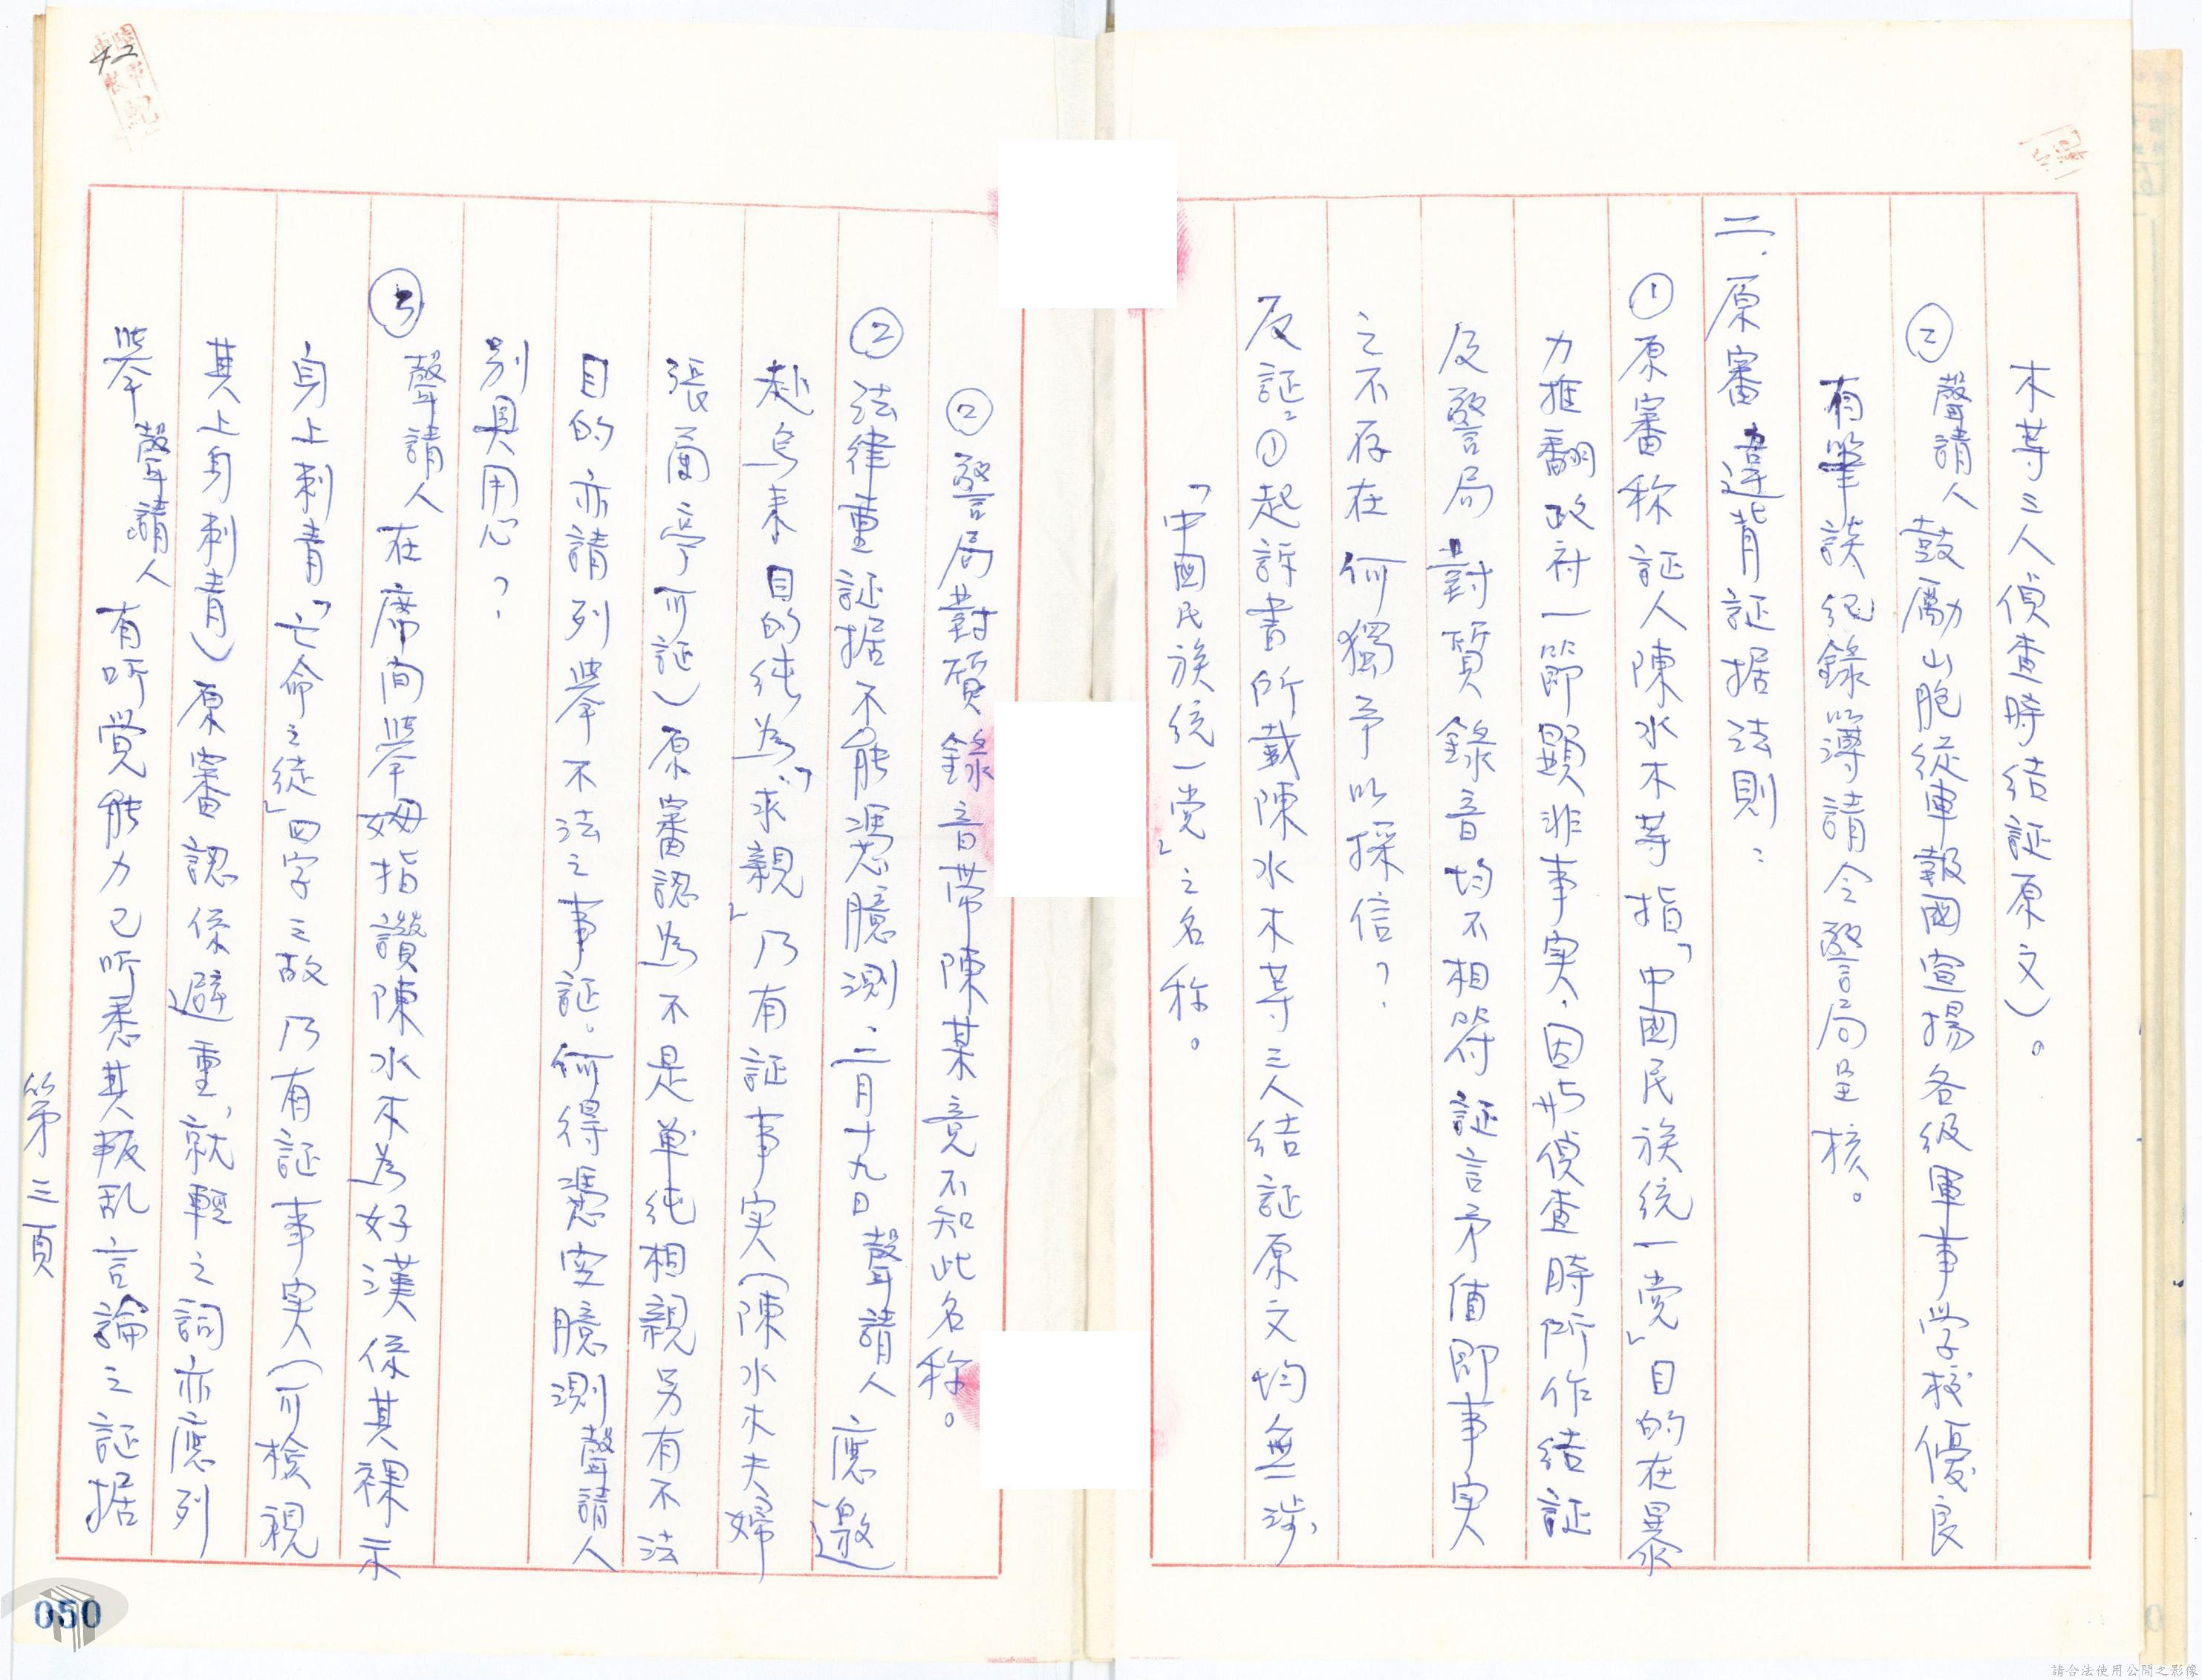 木等三人偵查時结証原文)。
②聲請人鼓勵山胞從軍報國宣揚各級軍事学校優良
有筆談紀錄簿請令警局呈核。
二、原審違背証据法則：
①原審称証人陳水木等指「中國民族统一党」目的在暴
力推翻政府一節顯非事实，因此偵查時所作结証
及警局對質錄音均不相符証言矛盾即事实
之不存在何獨予以採信？
反証：①起訴書所載陳水木等三人结証原文均無涉
「中國民族统一党」之名称。
②警局對質錄音帶陳某竟不知此名称。
②法律重証据不能憑臆測：二月十九日聲請人應邀
赴烏来目的純為「求親」乃有証事实(陳水木夫婦
張 可証)原審認為不是单純相親另有不法
目的亦請列举不法之事証。何得憑空臆測聲請人
別具用心？
③聲請人在席间举姆指讚陳水木為好漢係其裸示
身上刺青「亡命之徒」四字之故乃有証事实(可檢視
其上身刺青)原審認係避重就輕之詞亦應列
举聲請人有听觉能力已听悉其叛乱言論之証据
第三頁
050
請合法使用公開之影像